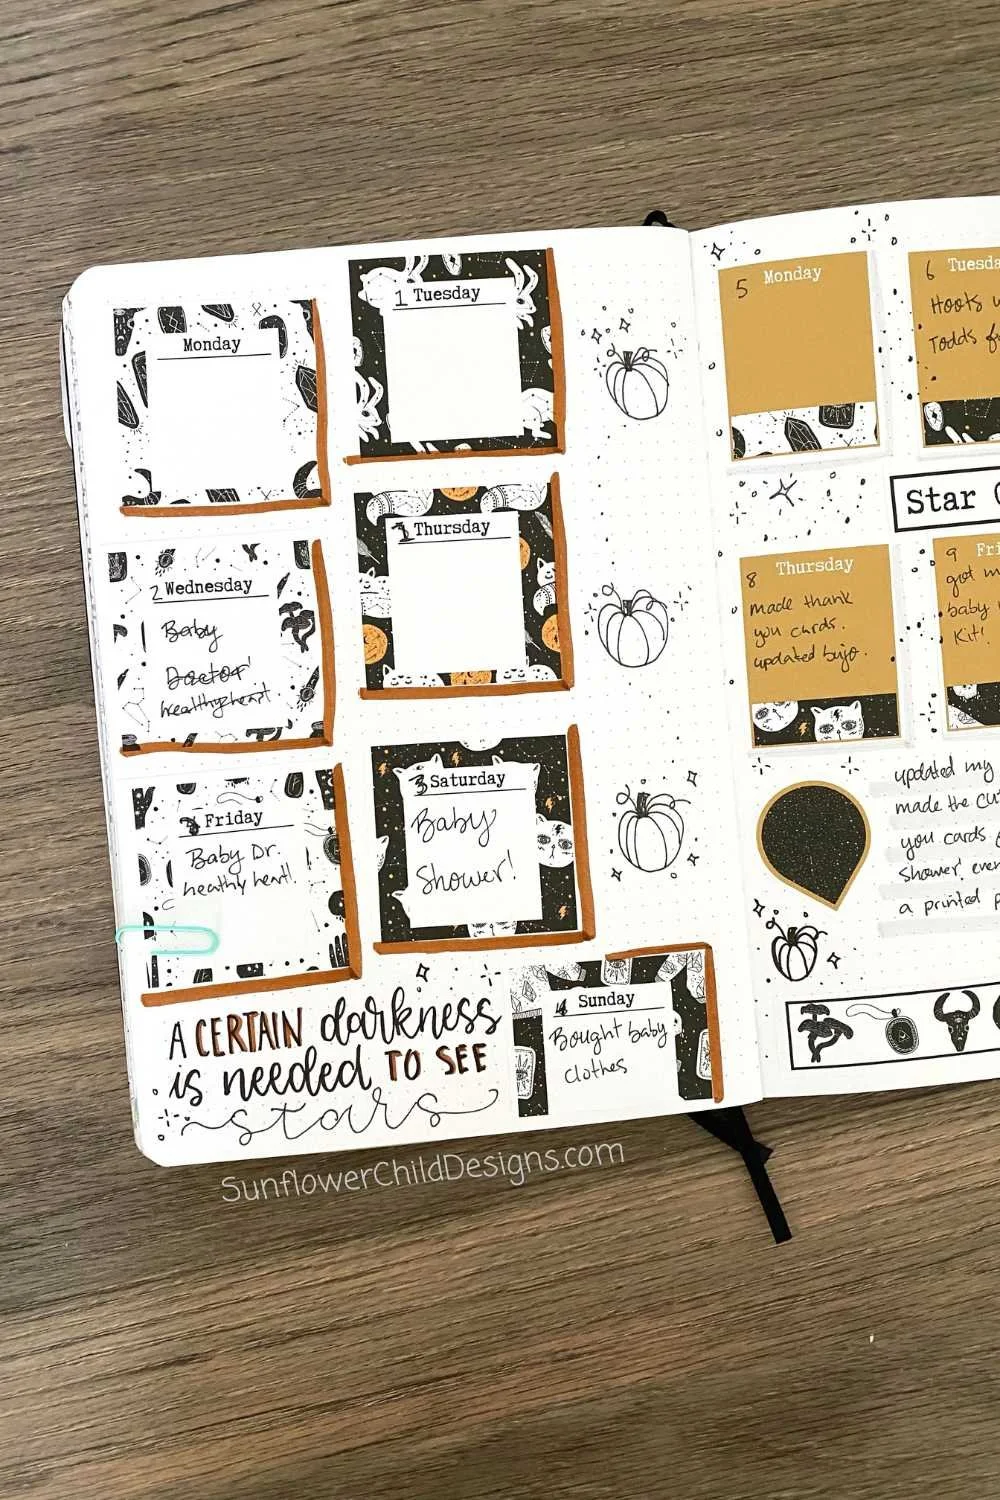 Monday
1 Tuesday
2 Wednesday
Baby
Doctor!
healthy heart
Thursday
Friday
Baby Dr.
healthy heart!
Saturday
Baby
Shower!
4 Sunday
Bought baby
clothes
A CERTAIN darkness
is needed TO SEE
stars
SunflowerChildDesigns.com
5 Monday
6 Tuesda
Hoots
Todds
Star
8 Thursday
made thank
you cards.
updated bujo.
9 Fri
got m
baby
Kit!
updated my
made the cu
you cards
shower! ever
a printed p